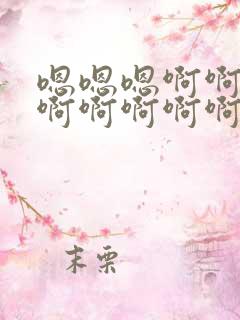 嗯嗯嗯啊啊
啊啊啊啊啊
末栗